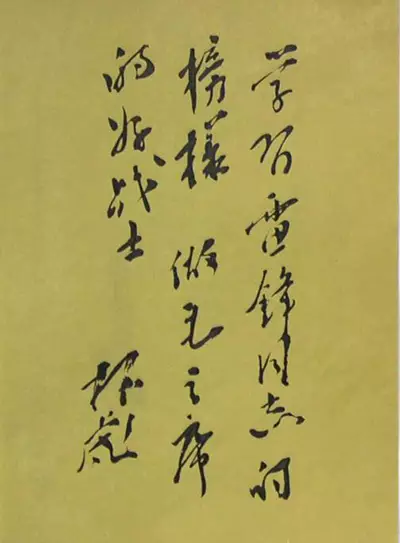 学习雷锋同志的
榜樣 做毛主席
的好战士
林彪